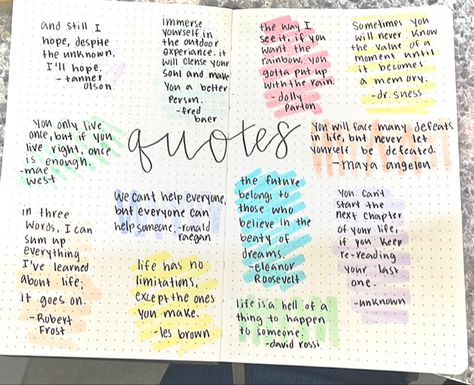 and still I
hope, despite
the unknown.
I'll hope.
-tanner
olson
immerse
yourself in
the outdoor
experiance. it
will clense your
soul and make
you a better
person.
-fred
baer
the way I
see it, if you
want the
rainbow, you
gotta put up
with the rain.
-dolly
parton
Sometimes you
will never know
the value of a
moment until
it becomes
a memory.
-dr. suess
You only live
once, but if you
live right, once
is enough.
-mae
west
quotes
You will face many defeats
in life, but never let
yourself be defeated.
-maya angelou
in three
words, I can
sum up
everything
I've learned
about life,
it goes on.
-Robert
Frost
we can't help everyone,
but everyone can
help someone. -ronald
raegan
life has no
limitations,
except the ones
you make.
-les brown
the future
belongs to
those who
believe in the
beaty of
dreams.
-eleanor
Roosevelt
life is a hell of a
thing to happen
to someone.
-david rossi
You can't
start the
next chapter
of your life,
if you keep
re-reading
your last
one.
-unknown